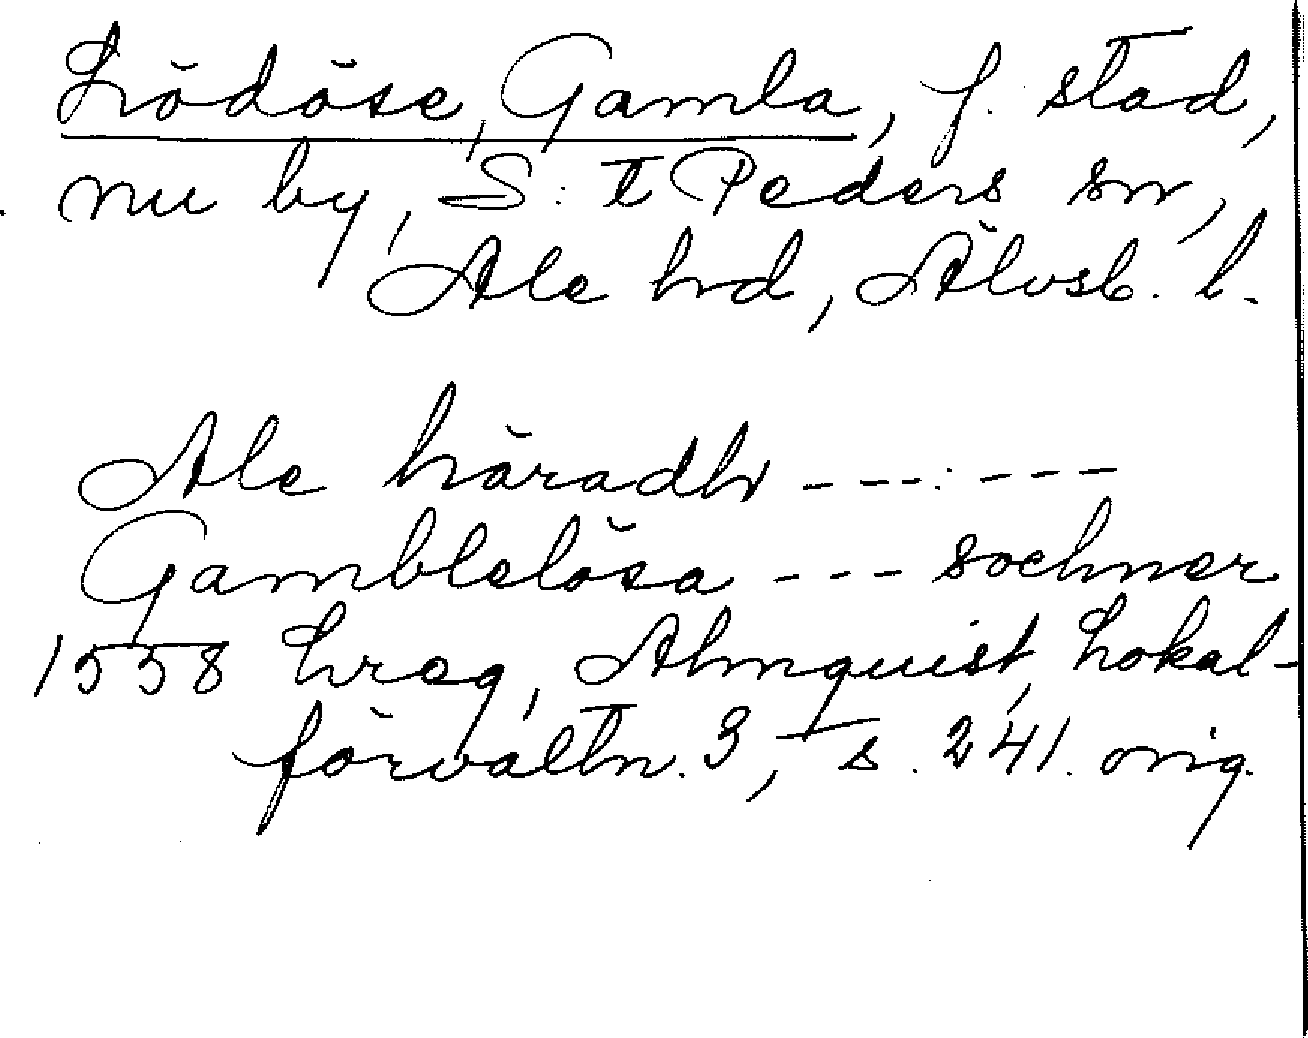 Lödöse, Gamla, f. stad,
nu by, S:t Peders sn,
Ale hd, Älvsb. l.
Ale häradh --- : ---
Gamblelösa --- sochner
1558 hreg, Almquist, Lokal-
förvaltn. 3, s. 241. orig.